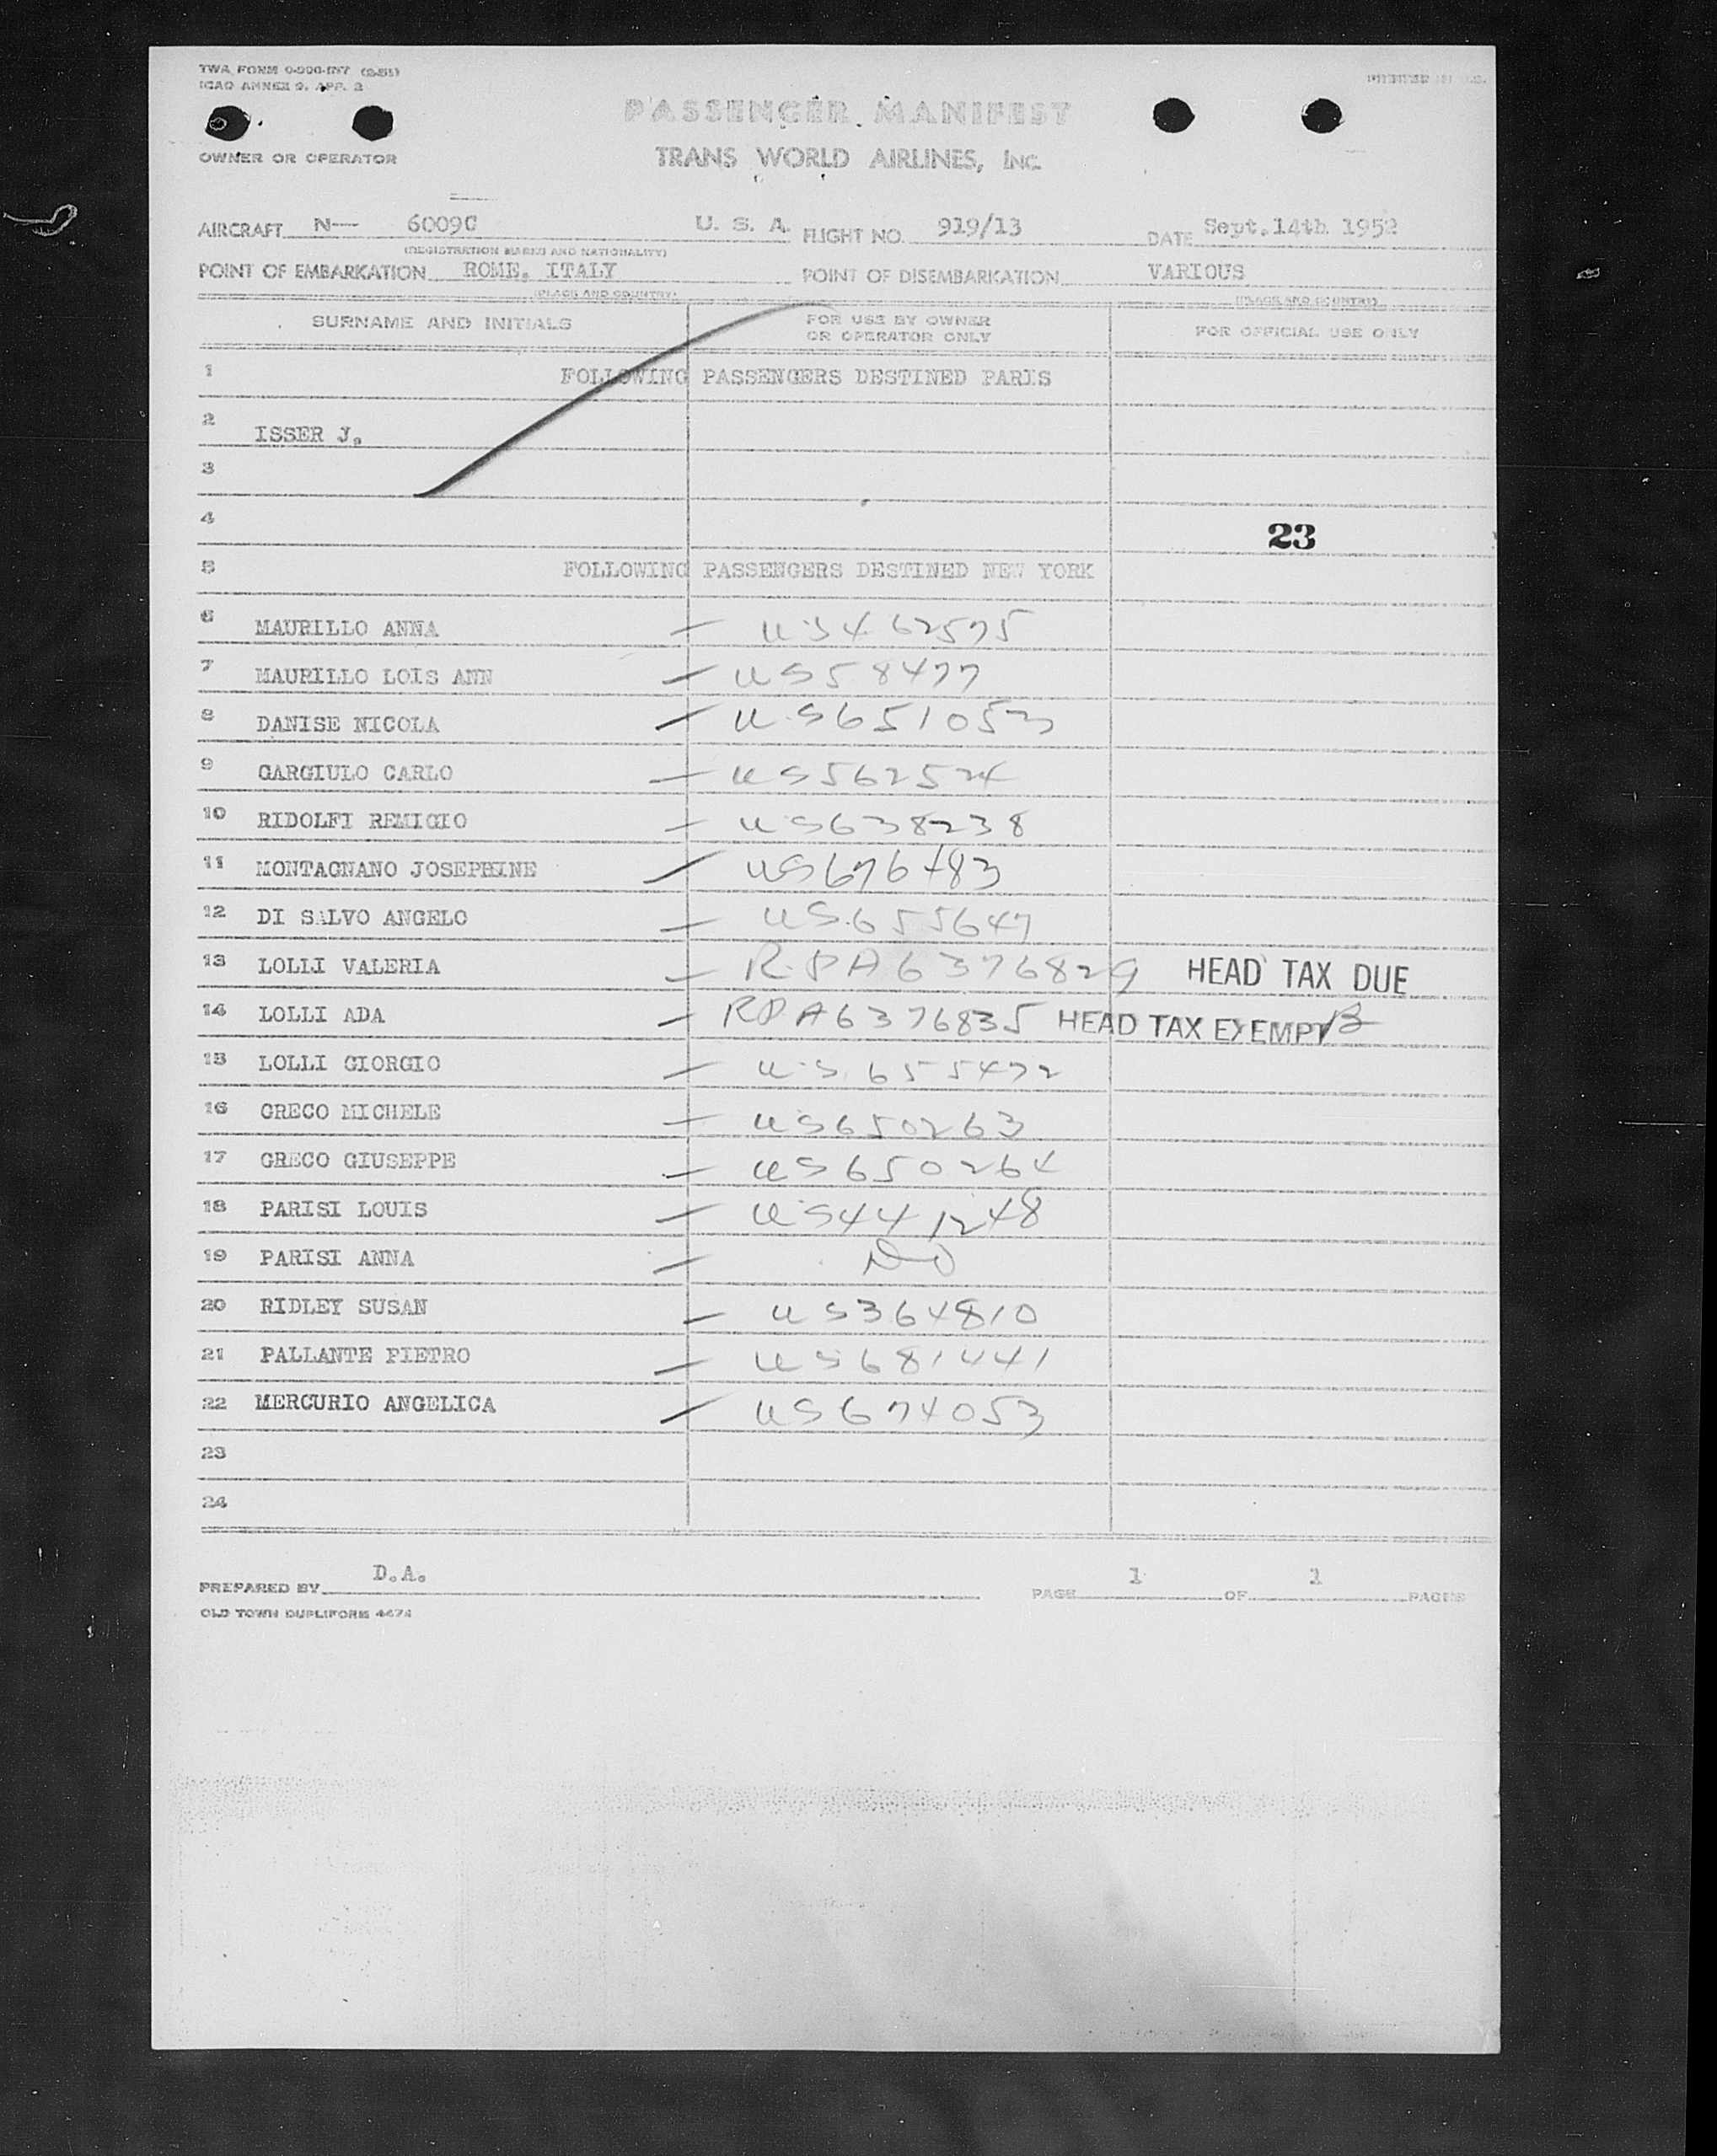 TWA FORM
ICAO ANNEX 9, APP. 2
PRINTED IN U.S.
PASSENGER MANIFEST
OWNER OR OPERATOR
TRANS WORLD AIRLINES, INC.
AIRCRAFT N— 6009C U. S. A. FLIGHT NO. 919/13 DATE Sept.14th 1952
(REGISTRATION MARKS AND NATIONALITY)
POINT OF EMBARKATION ROME, ITALY POINT OF DISEMBARKATION VARIOUS
(PLACE AND COUNTRY) (PLACE AND COUNTRY)
SURNAME AND INITIALS FOR USE BY OWNER OR OPERATOR ONLY FOR OFFICIAL USE ONLY
1 FOLLOWING PASSENGERS DESTINED PARIS
2 ISSER J.
3
4 23
5 FOLLOWING PASSENGERS DESTINED NEW YORK
6 MAURILLO ANNA — US462575
7 MAURILLO LOIS ANN — US58477
8 DANISE NICOLA — US651053
9 GARGIULO CARLO — US562524
10 RIDOLFI REMIGIO — US638238
11 MONTAGNANO JOSEPHINE — US676483
12 DI SALVO ANGELO — US655647
13 LOLLI VALERIA — RPA6376829 HEAD TAX DUE
14 LOLLI ADA — RPA6376835 HEAD TAX EXEMPT
15 LOLLI GIORGIO — US655472
16 GRECO MICHELE — US650263
17 GRECO GIUSEPPE — US650264
18 PARISI LOUIS — US441248
19 PARISI ANNA — DO
20 RIDLEY SUSAN — US364810
21 PALLANTE PIETRO — US681441
22 MERCURIO ANGELICA — US674053
23
24
PREPARED BY D.A. PAGE 1 OF 1 PAGES
OLD TOWN DUPLIFORM 4474